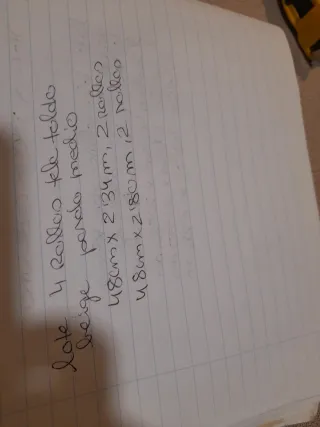 lote 4 Rollos tela toldo
beige pardo medio
48cm x 2'34m, 2 rollos
48cm x 2'80m, 2 rollos.